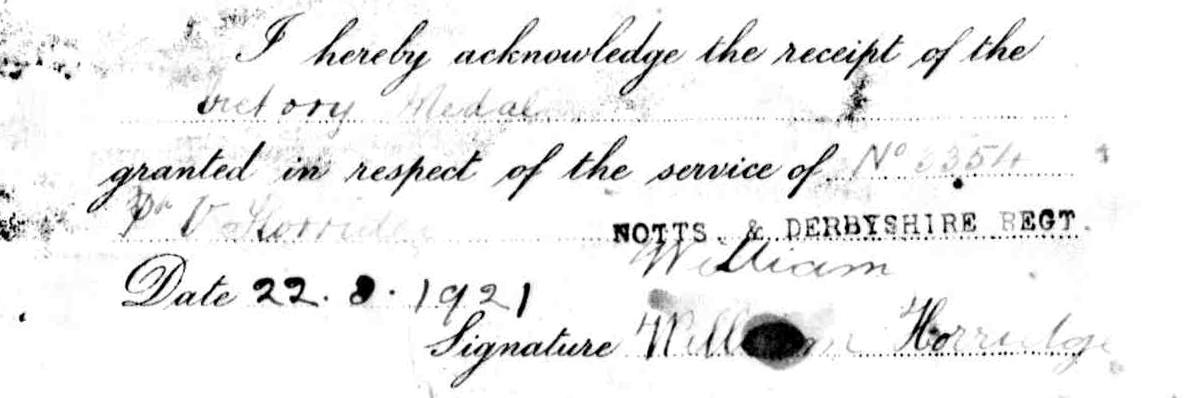 I hereby acknowledge the receipt of the
Victory Medal
granted in respect of the service of Nº 3354
V Horridge NOTTS. & DERBYSHIRE REGT.
William
Date 22. 8. 1921
Signature William Horridge